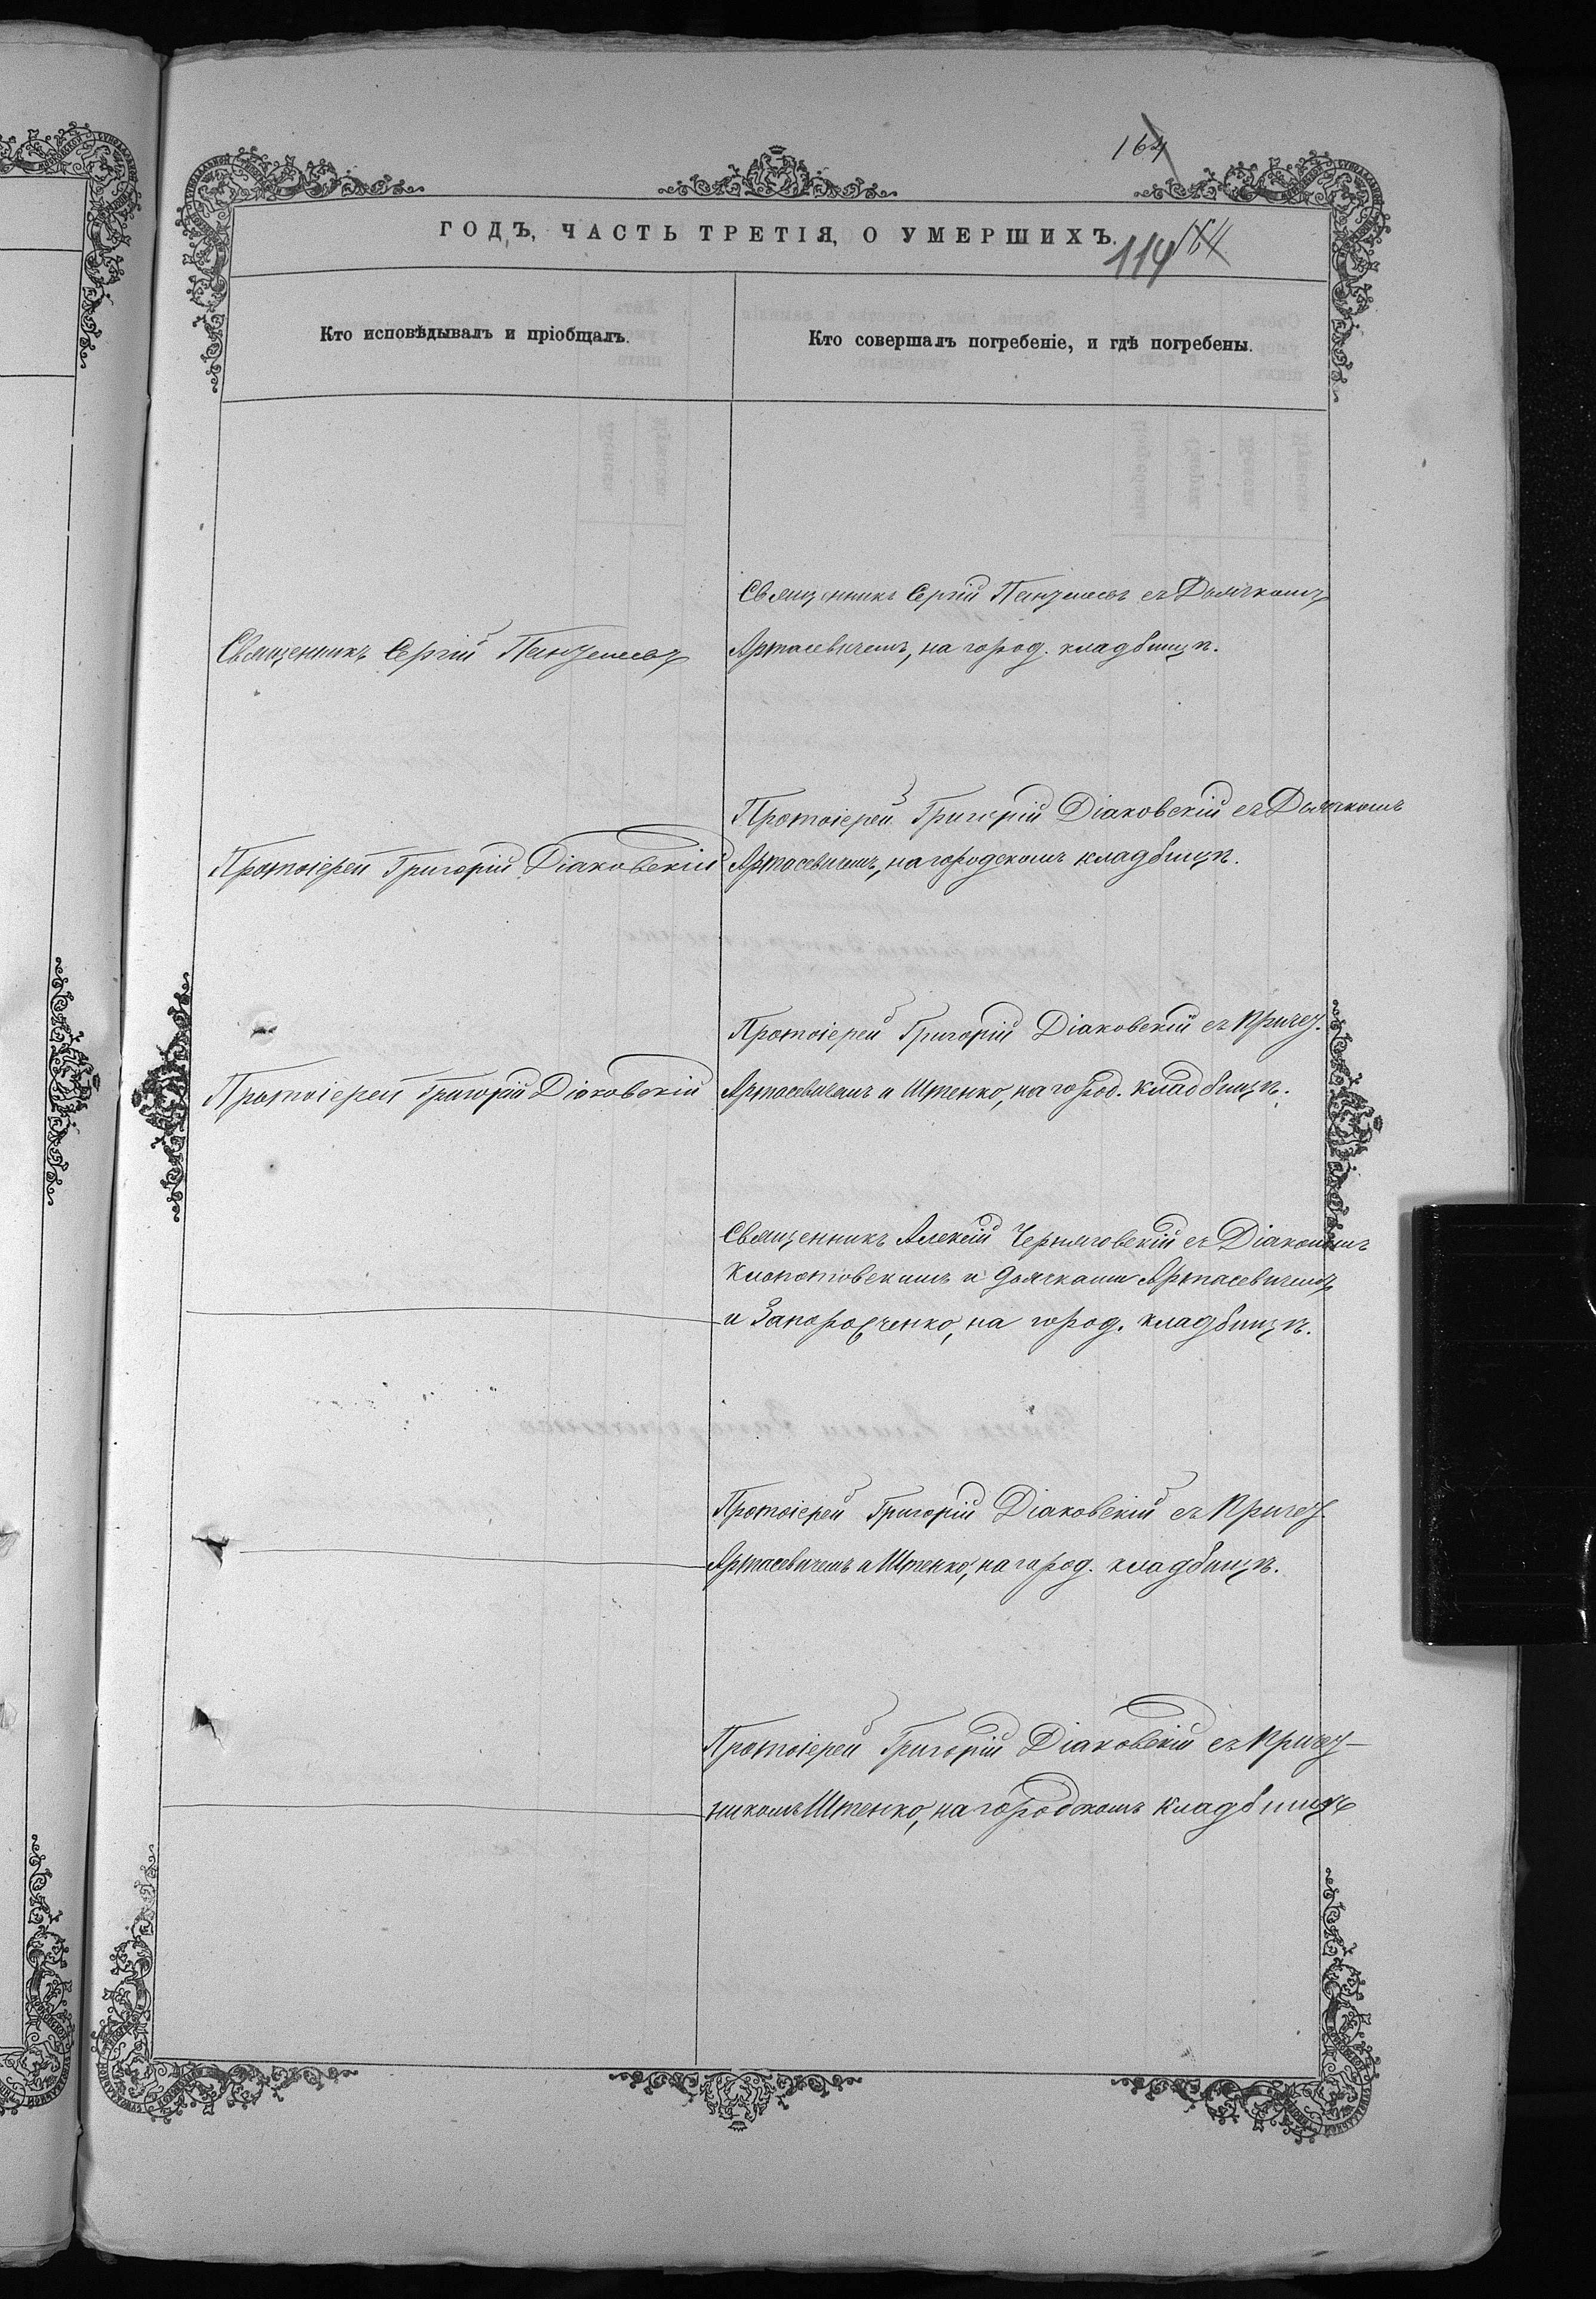 164
ГОДЪ, ЧАСТЬ ТРЕТІЯ, О УМЕРШИХЪ.
114 164
Кто исповѣдывалъ и пріобщалъ.
Кто совершалъ погребеніе, и гдѣ погребены.
Священникъ Сергій
Священникъ Сергій съ Дьячкомъ
Артасевичемъ, на город. кладбищѣ.
Протоіерей Григорій Діаковскій
Протоіерей Григорій Діаковскій съ Дьячкомъ
Артасевичемъ, на городскомъ кладбищѣ.
Протоіерей Григорій Діаковскій
Протоіерей Григорій Діаковскій съ причет.
Артасевичемъ и Штенко, на город. кладбищѣ.
Священникъ Алексій Черняговскій съ Діакономъ
Клопотовскимъ и дьячками Артасевичемъ
и Запорожченко, на город. кладбищѣ.
Протоіерей Григорій Діаковскій съ Причет.
Артасевичемъ и Штенко, на город. кладбищѣ.
Протоіерей Григорій Діаковскій съ причет-
никомъ Штенко, на городскомъ кладбищѣ